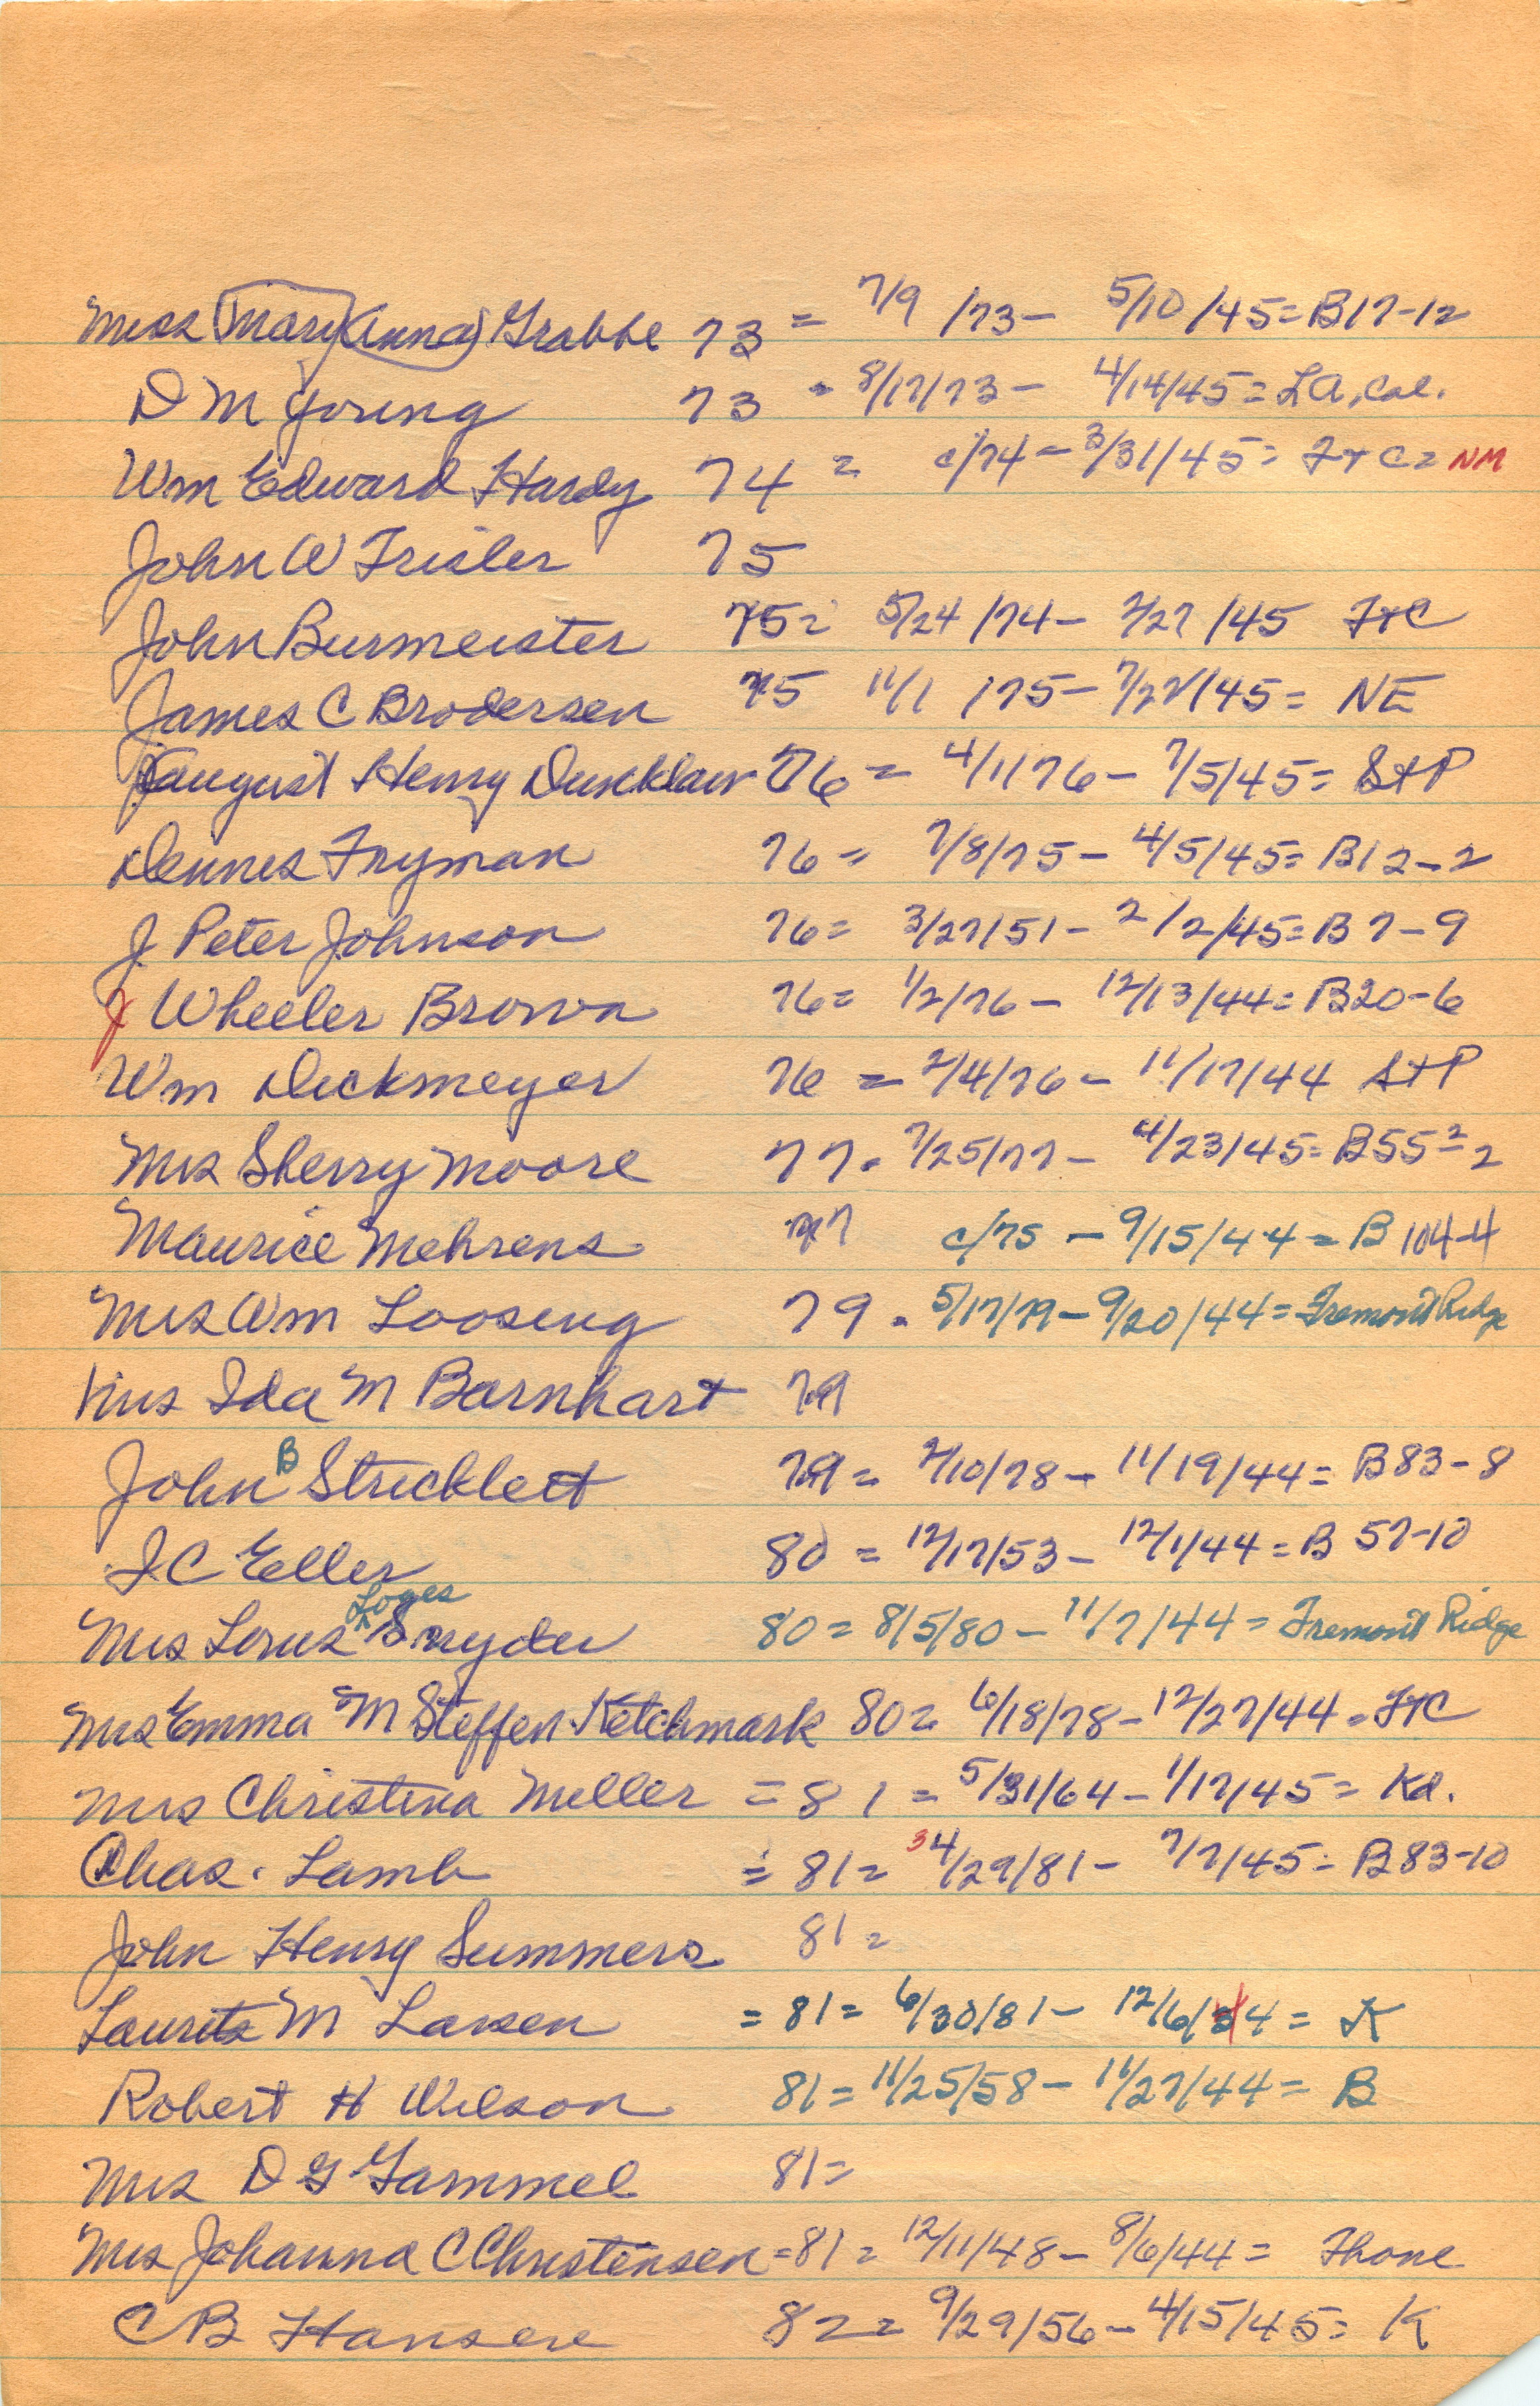 Miss Mary (Anna) Grabbe 73 = 7/9/73 - 5/10/45 = B17-12
D M Young 73 - 8/17/73 - 4/14/45 = LA, Cal.
Wm Edward Hardy 74 = c/74 - 3/31/45 = F+C = NM
John W Frisler 75
John Burmeister 75 = 5/24/74 - 2/27/45 F+C
James C Brodersen 75 11/1/75 - 7/27/45 = NE
August Henry Duncklau 76 = 4/1/76 - 7/5/45 = S+P
Dennes Fryman 76 = 7/8/75 - 4/5/45 = B12-2
J Peter Johnson 76 = 3/27/51 - 2/2/45 = B7-9
J Wheeler Brown 76 = 1/2/76 - 12/13/44 = B20-6
Wm Dickmeyer 76 = 2/4/76 - 11/17/44 S+P
Mrs Sherry Moore 77 - 7/25/77 - 4/23/45 = B55
Maurice Mehrens 77 c/75 - 9/15/44 = B104-4
Mrs Wm Looseng 79 - 5/17/79 - 9/20/44 = Fremont Ridge
Mrs Ida M Barnhart 79
John B Stricklett 79 = 2/10/78 - 11/19/44 = B83-8
I C Eller 80 = 12/17/53 - 12/1/44 = B 57-10
Mrs Louis Loges Snyder 80 = 8/5/80 - 11/7/44 = Fremont Ridge
Mrs Emma M Steffen Ketchmark 80 = 6/18/78 - 12/27/44 = F+C
Mrs Christina Miller = 81 = 5/31/64 - 1/17/45 = Kd.
Chas. Lamb = 81 = 3 4/29/81 - 7/7/45 = B83-10
John Henry Summers 81 =
Laurits M Larsen = 81 = 6/30/81 - 12/6/44 = K
Robert H Wilson 81 = 11/25/58 - 11/27/44 = B
Mrs D G Gammel 81 =
Mrs Johanna C Christensen = 81 = 12/11/48 - 8/6/44 = Thone
C B Hansen 82 = 9/29/56 - 4/15/45 = K